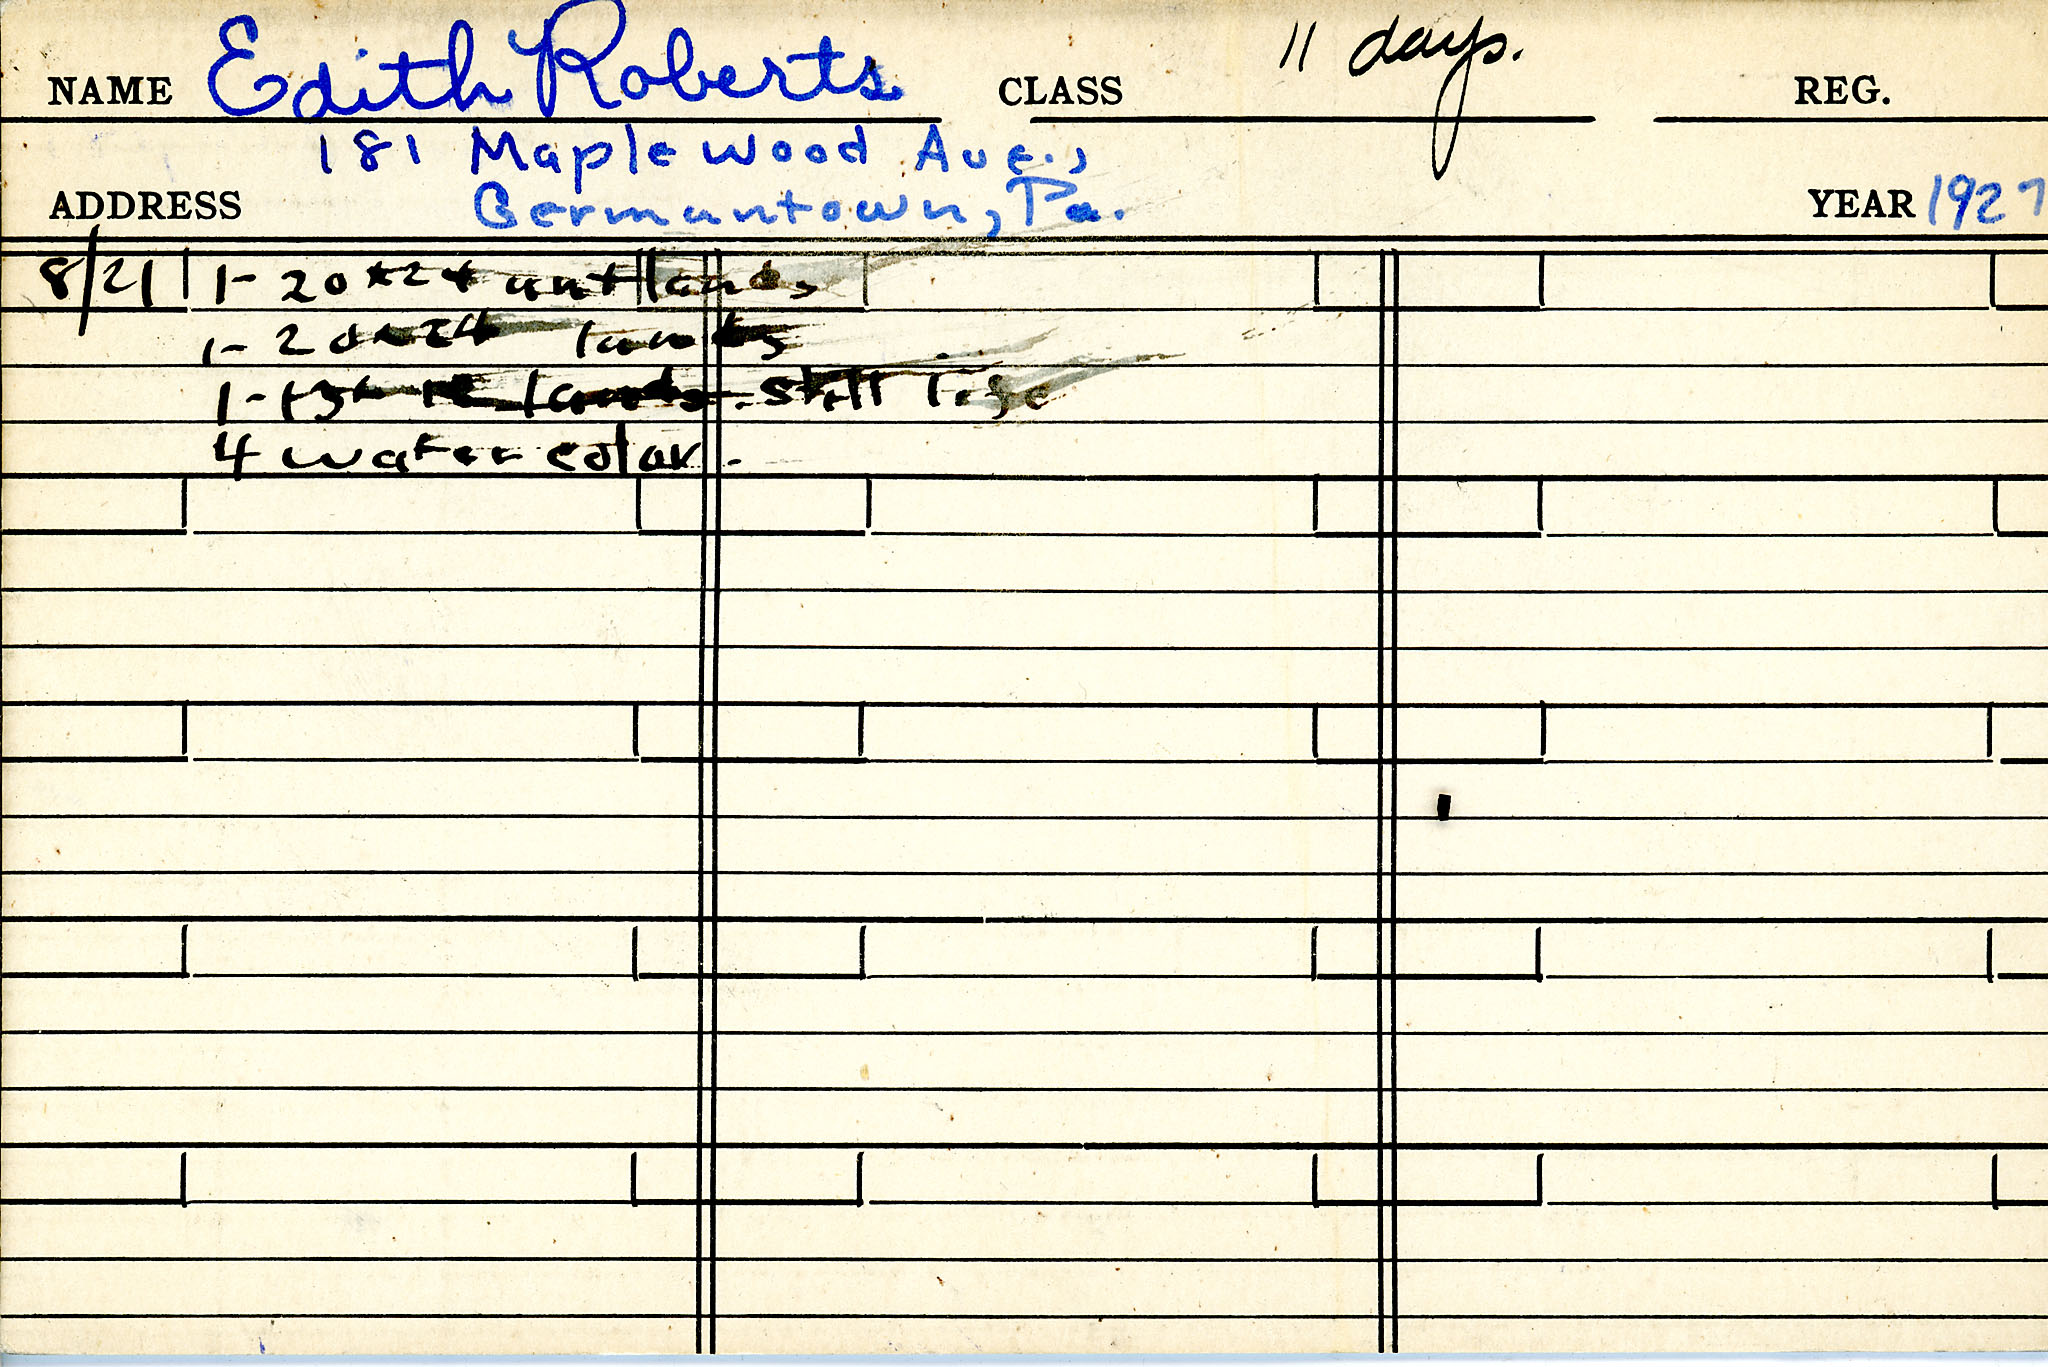 NAME Edith Roberts CLASS 11 days. REG.
181 Maplewood Ave.,
ADDRESS Germantown, Pa. YEAR 1927
8/21 1- 20x24 lands
1- 20x24 lands
1- lands. still life
4 water color.